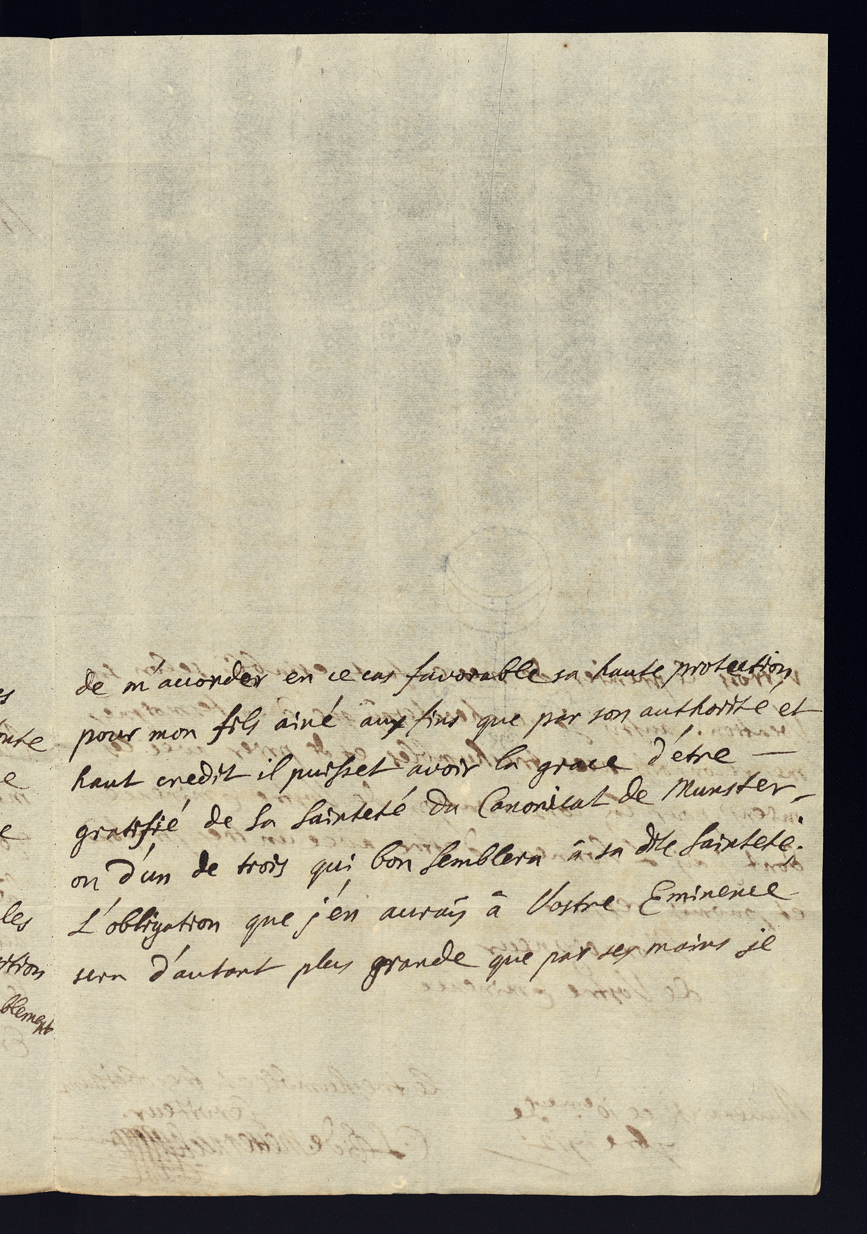 de m'accorder en ce cas favorable sa haute protection
pour mon fils ainé aux fins que par son authorité et
haut credit il puisset avoir la grace d'étre —
gratifié de sa Sainteté du Canonicat de Munster,
ou d'un de trois qui bon semblera â sa dite Sainteté.
L'obligation que j'en aurais â Vostre Eminence
sera d'autant plus grande que par ses mains je
les
ption
blement